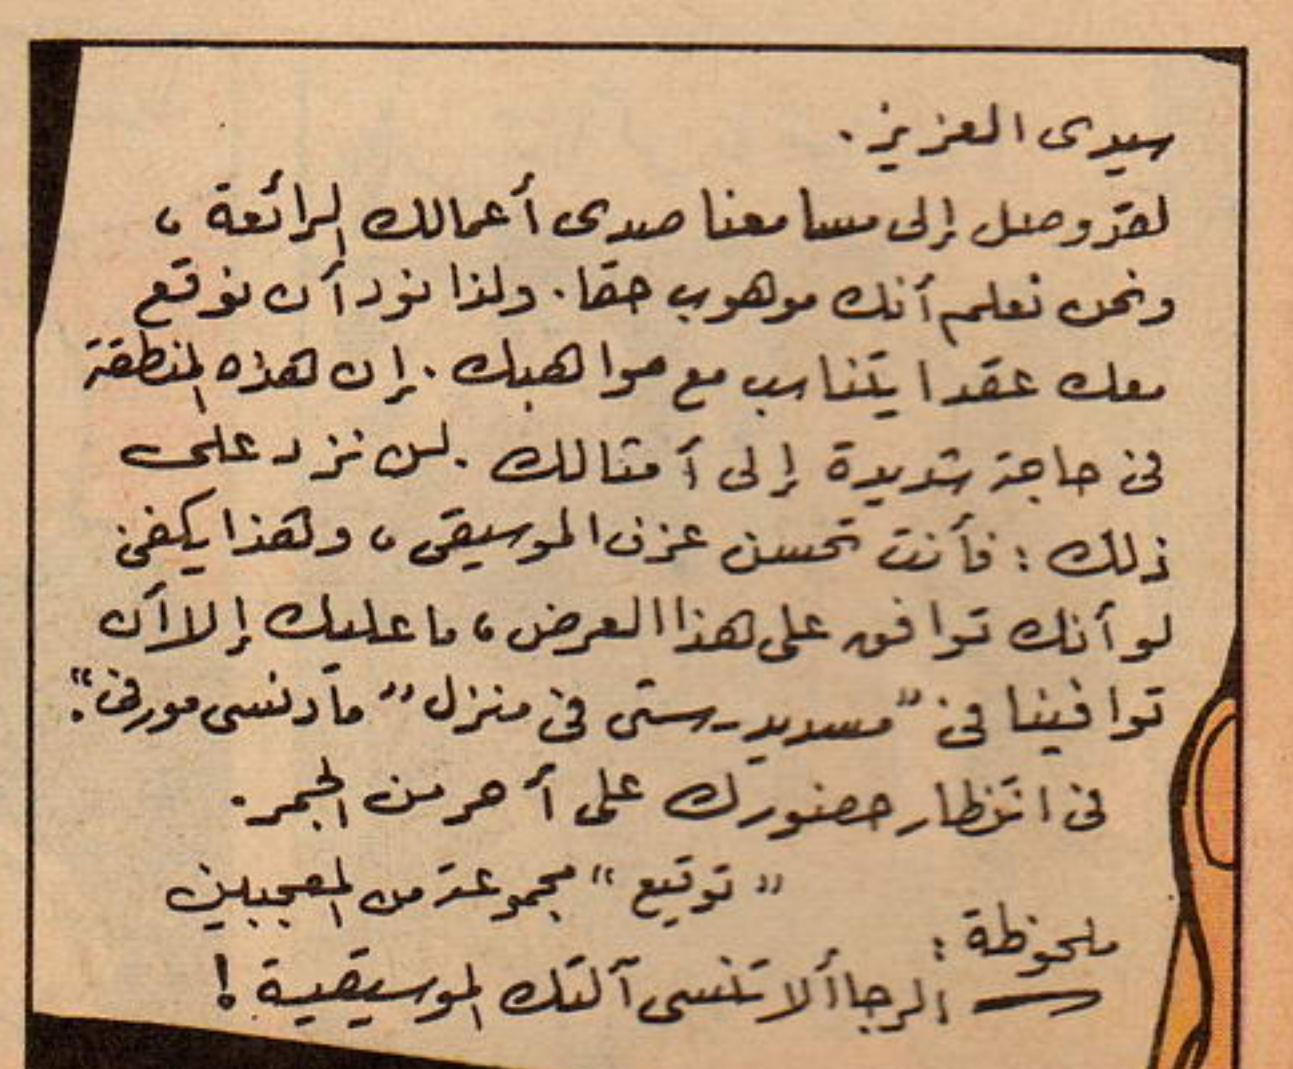 سيدى العزيز.
لقد وصل إلى مسامعنا صدى أعمالك الرائعة ،
ونحن نعلم أنك موهوب حقا. ولذا نود أن نوقع
معك عقدا يتناسب مع مواهبك . إن هذه المنطقة
فى حاجة شديدة إلى أمثالك . لن نزد على
ذلك : فأنت تحسن عزف الموسيقى ، وهذا يكفى
لو أنك توافق على هذا العرض ، ما عليك إلا أن
توافينا فى " مسديد - ستى فى منزل " مادنسى مورفى ".
فى انتظار حضورك على أحر من الجمر.
" توقيع " مجموعة من المعجبين
ملحوظة :
الرجا ألا تنسى آلتك الموسيقية !